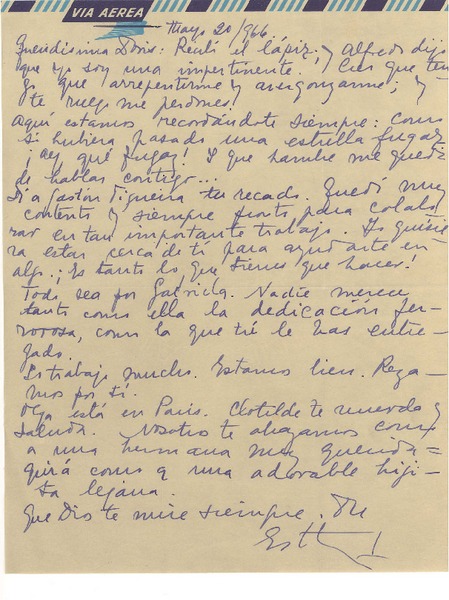 VIA AEREA
Mayo 20/966
Queridísima Doris: Recibí el lápiz; y Alfredo dijo
que yo soy una impertinente! Creo que ten
go que arrepentirme y avergonzarme; y
te ruego me perdones!
Aquí estamos recordándote siempre: como
si hubiera pasado una estrella fugaz
¡ay qué fugaz! Y qué hambre me quedó
de hablar contigo...
Dí a Gastón Figueira tu recado. Quedó muy
contento y siempre pronto para colabo
rar en tan importante trabajo. Yo quisie
ra estar cerca de tí para ayudarte en
algo. ¡Es tanto lo que tienes que hacer!
Todo sea por Gabriela. Nadie merece
tanto como ella la dedicación fer-
vorosa, como la que tú le has entre-
gado.
Yo trabajo mucho. Estamos bien. Roga
mos por tí.
Olga está en París. Clotilde te recuerda y
saluda. Nosotros te abrazamos como
a una hermana muy querida =
quizá como a una adorable hiji-
ta lejana.
Que Dios te mire siempre. Tu
Esther